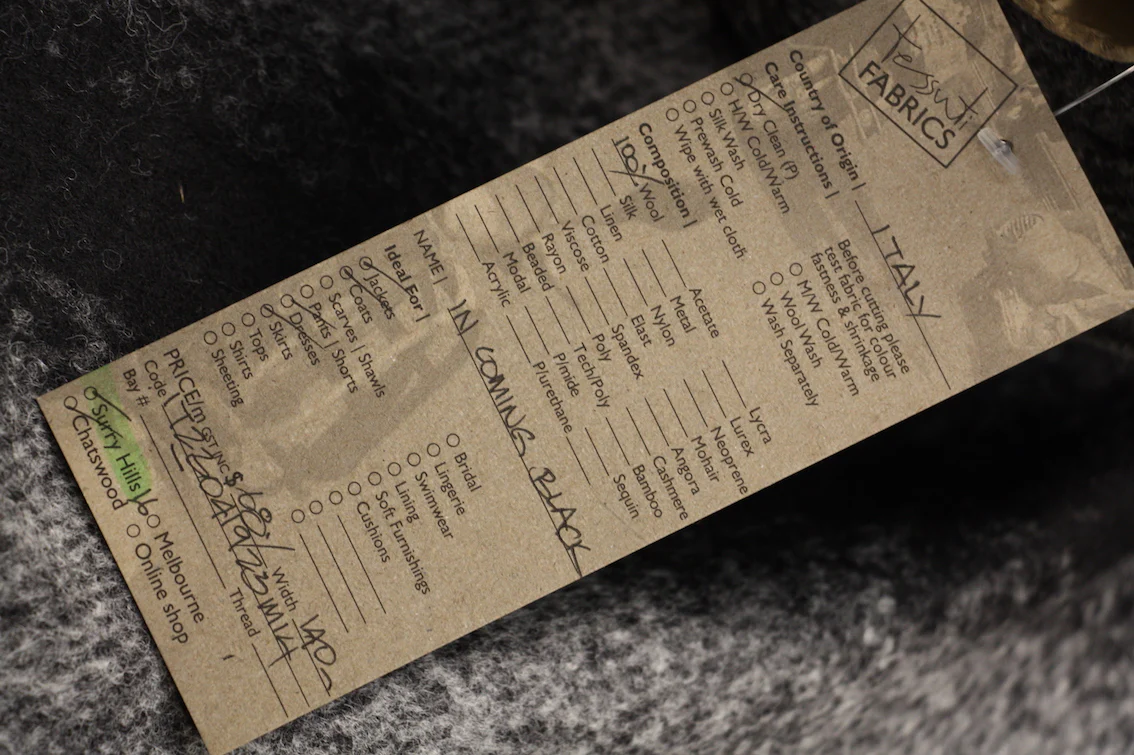 tessuti
FABRICS
Country of Origin | ITALY
Care Instructions |
Dry Clean (P)
H/W Cold/Warm
Silk Wash
Prewash Cold
Wipe with wet cloth
Before cutting please
test fabric for colour
fastness & shrinkage
M/W Cold/Warm
Wool Wash
Wash Separately
Composition |
100% Wool
Silk
Linen
Cotton
Viscose
Rayon
Beaded
Modal
Acrylic
Acetate
Metal
Nylon
Elast
Spandex
Poly
Tech/Poly
P/mide
P/urethane
Lycra
Lurex
Neoprene
Mohair
Angora
Cashmere
Bamboo
Sequin
NAME | IN COMING BLACK
Ideal For |
Jackets
Coats
Scarves | Shawls
Pants | Shorts
Dresses
Skirts
Tops
Shirts
Sheeting
Bridal
Lingerie
Swimwear
Lining
Soft Furnishings
Cushions
PRICE/m GST INC $ Width 140
Code
Bay # Thread
Surry Hills
Chatswood
Melbourne
Online shop